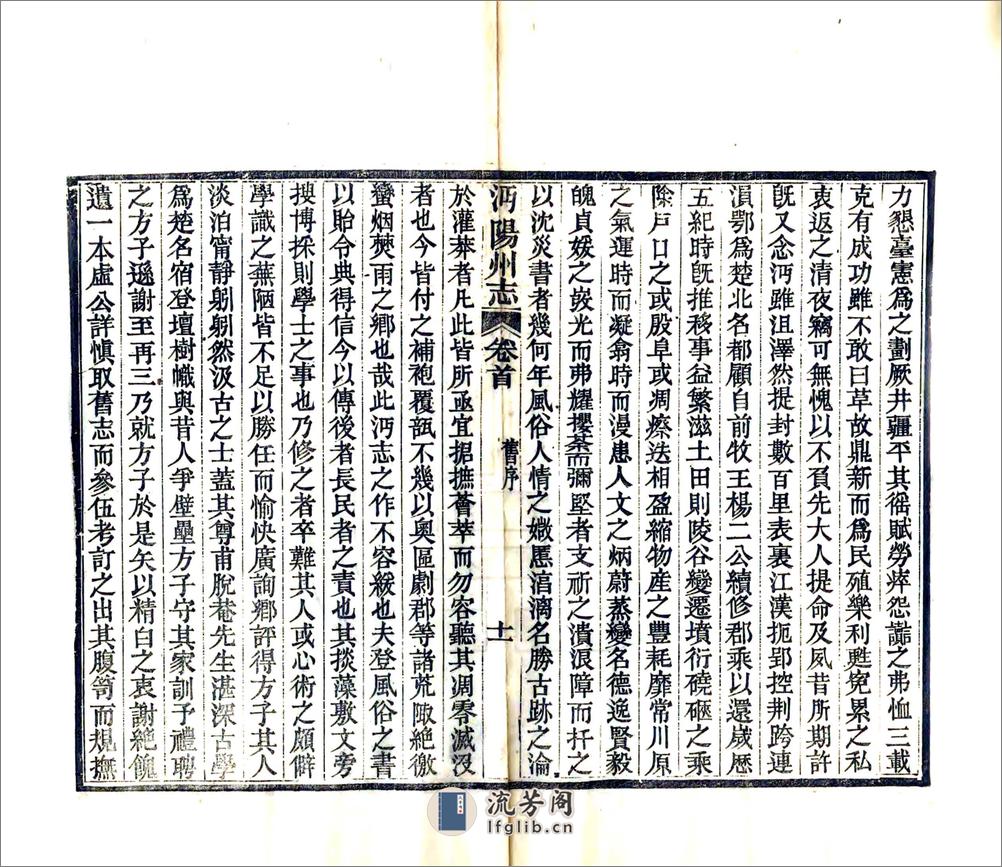 力懇臺憲爲之劃厥井疆平其徭賦勞瘁怨讟之弗恤三載
克有成功雖不敢曰革故鼎新而爲民殖樂利甦寃累之私
衷返之清夜竊可無愧以不負先大人提命及夙昔所期許
旣又念沔雖沮澤然提封數百里表裏江漢扼郢控荆跨連
溳鄂爲楚北名都顧自前牧王楊二公續修郡乘以還歲歷
五紀時旣推移事益繁滋土田則陵谷變遷墳衍磽碅之乘
除戶口之或殷阜或凋瘵迭相盈縮物產之豐耗靡常川原
之氣運時而凝翕時而漫患人文之炳蔚蒸變名德逸賢毅
魄貞媛之姣光而弗耀攖荼而彌堅者支祈之潰浪障而扞之
以沈災書者幾何年風俗人情之媺慝淳漓名勝古跡之淪
沔陽州志 卷首 舊序 十一
於灌莽者凡此皆所亟宜挹撫薈萃而勿容聽其凋零滅沒
者也今皆付之補袍覆瓿不幾以奧區劇郡等諸荒陬絕徼
蠻烟僰雨之鄉也哉此沔志之作不容緩也夫登風俗之書
以貽令典得信今以傳後者長民者之責也其掞藻敷文旁
搜博採則學士之事也乃修之者卒難其人或心術之頗僻
學識之蕪陋皆不足以勝任而愉快廣詢鄉評得方子其人
淡泊甯靜躬躬然汲古之士蓋其尊甫脫菴先生湛深古學
爲楚名宿登壇樹幟與昔人爭壁壘方子守其家訓予禮聘
之方子遜謝至再三乃就方子於是矢以精白之衷謝絕餽
遺一本虛公詳愼取舊志而參伍考訂之出其腹笥而規撫
流芳阁
lfglib.cn